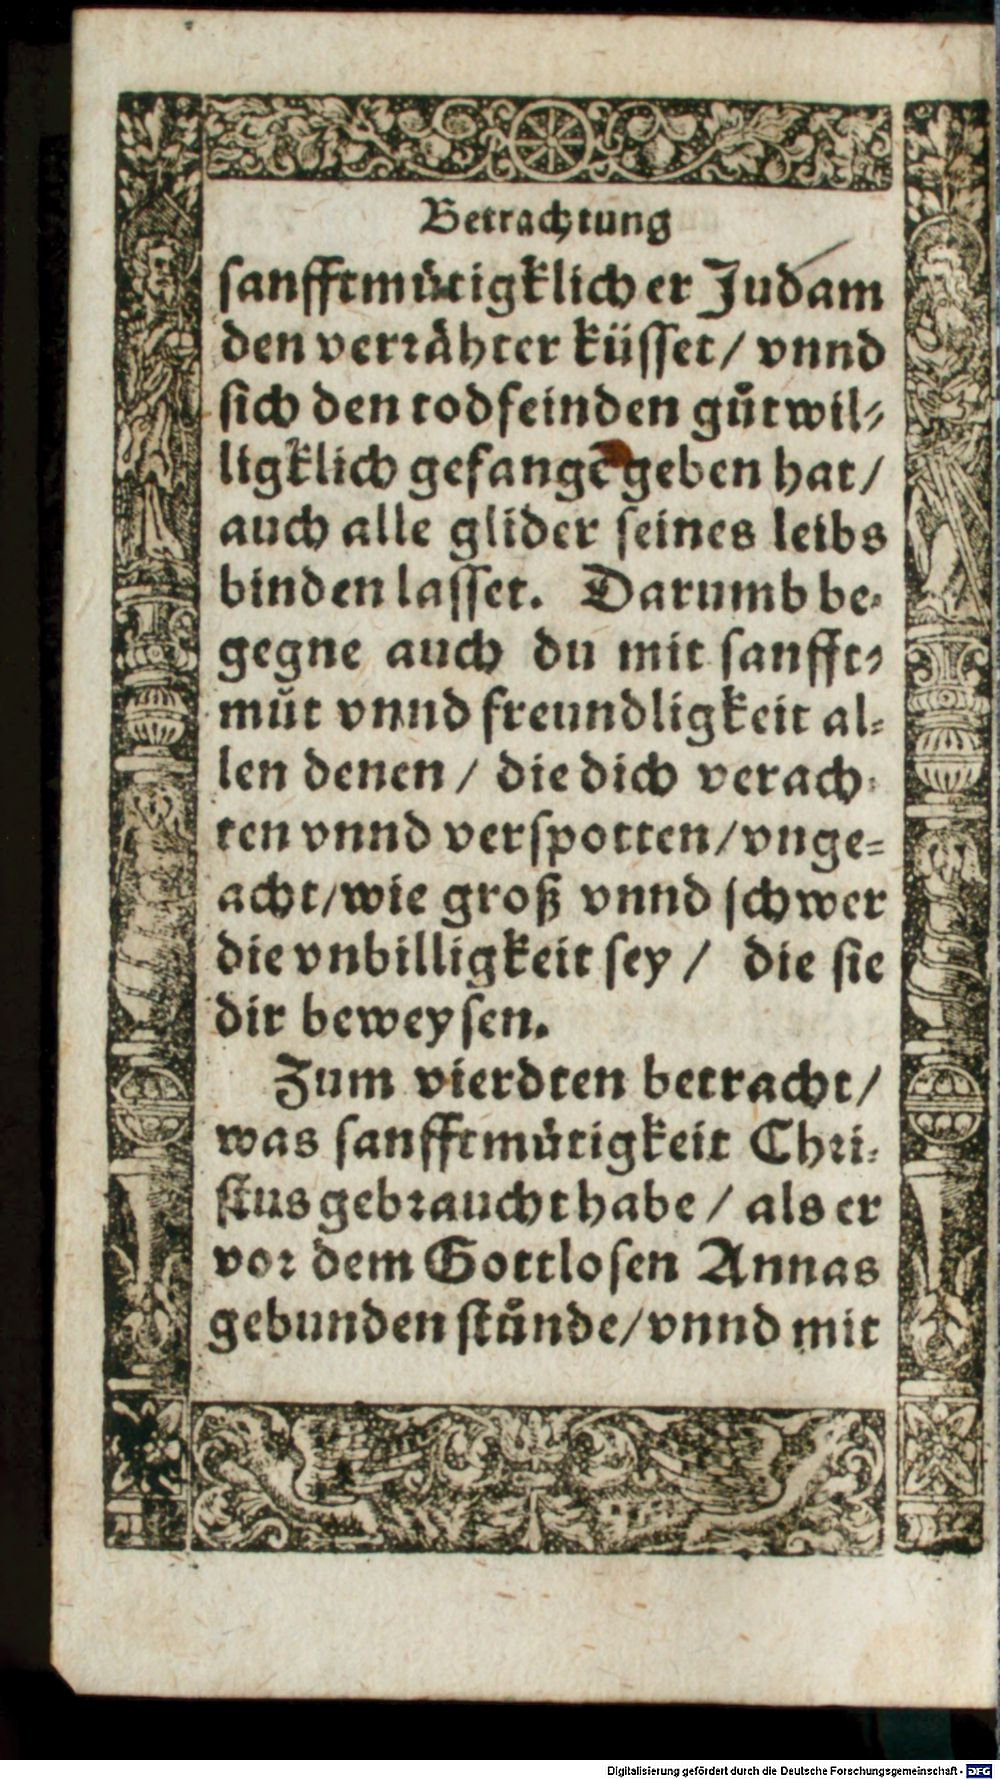 Betrachtung
sanfftmütigklich er Judam
den verrähter küsset / vnnd
sich den todfeinden gůtwil-
ligklich gefangē geben hat /
auch alle glider seines leibs
binden lasset. Darumb be-
gegne auch du mit sanfft-
můt vnnd freundligkeit al-
len denen / die dich verach-
ten vnnd verspotten / vnge-
acht / wie groß vnnd schwer
die vnbilligkeit sey / die sie
dir beweysen.
Zum vierdten betracht /
was sanfftmütigkeit Chri-
stus gebraucht habe / als er
vor dem Gottlosen Annas
gebunden stůnde / vnnd mit
Digitalisierung gefördert durch die Deutsche Forschungsgemeinschaft - DFG